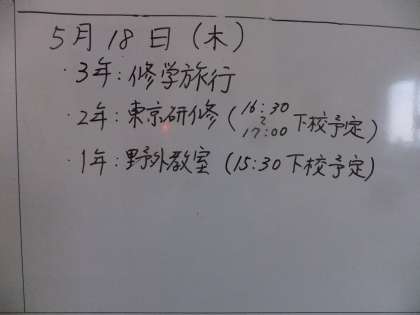 5月18日(木)
・3年:修学旅行
・2年:東京研修(16:30〜17:00下校予定)
・1年:野外教室(15:30下校予定)